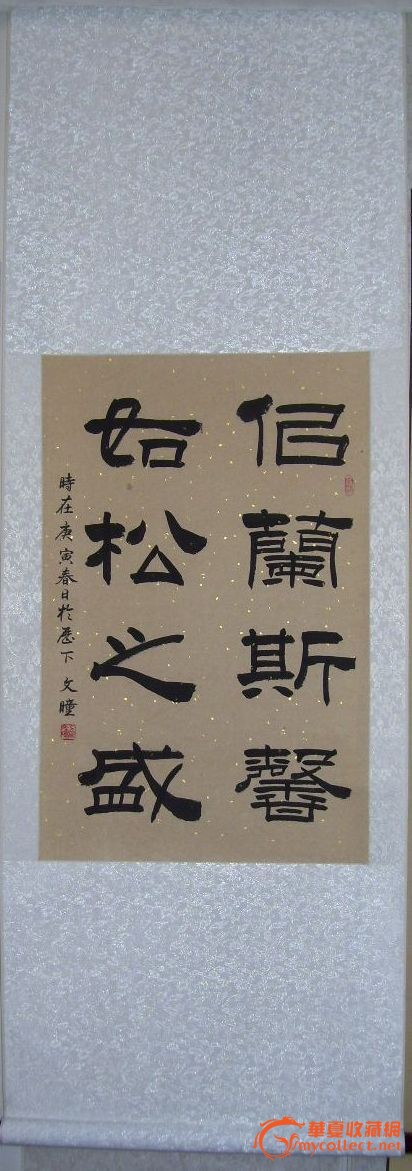 佀蘭斯馨
如松之盛
時在庚寅春日於歷下 文瞳
華夏收藏網
mycollect.net